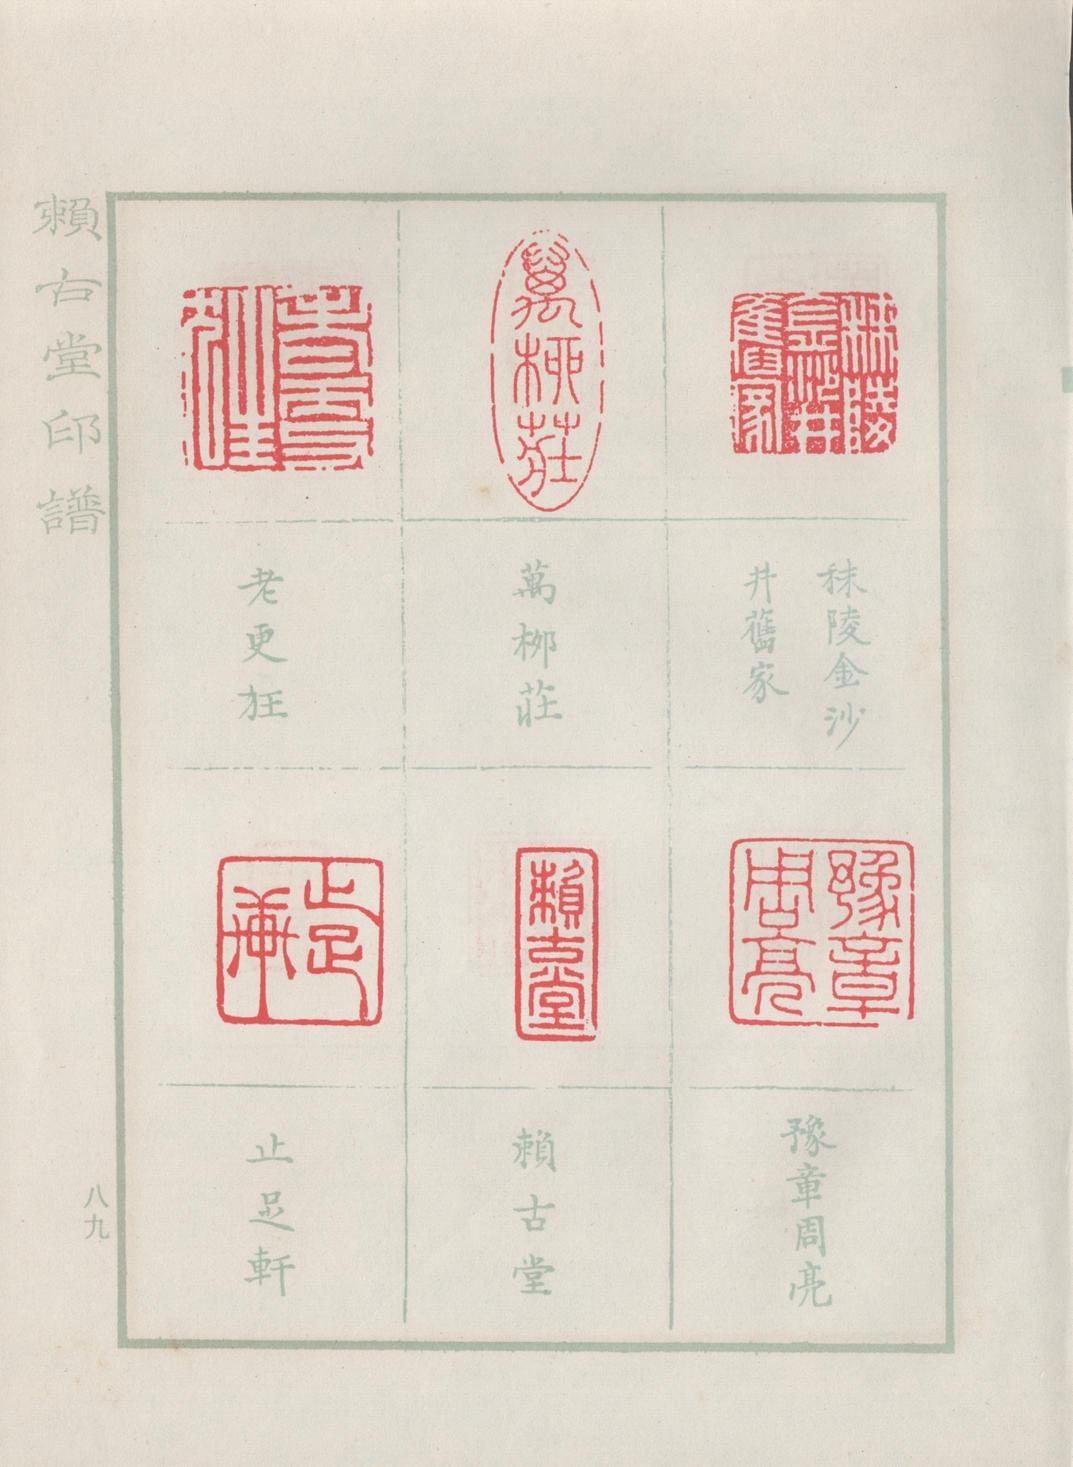 賴古堂印譜
秣陵金沙
井舊家
萬柳莊
老更狂
豫章周亮
賴古堂
止足軒
八九